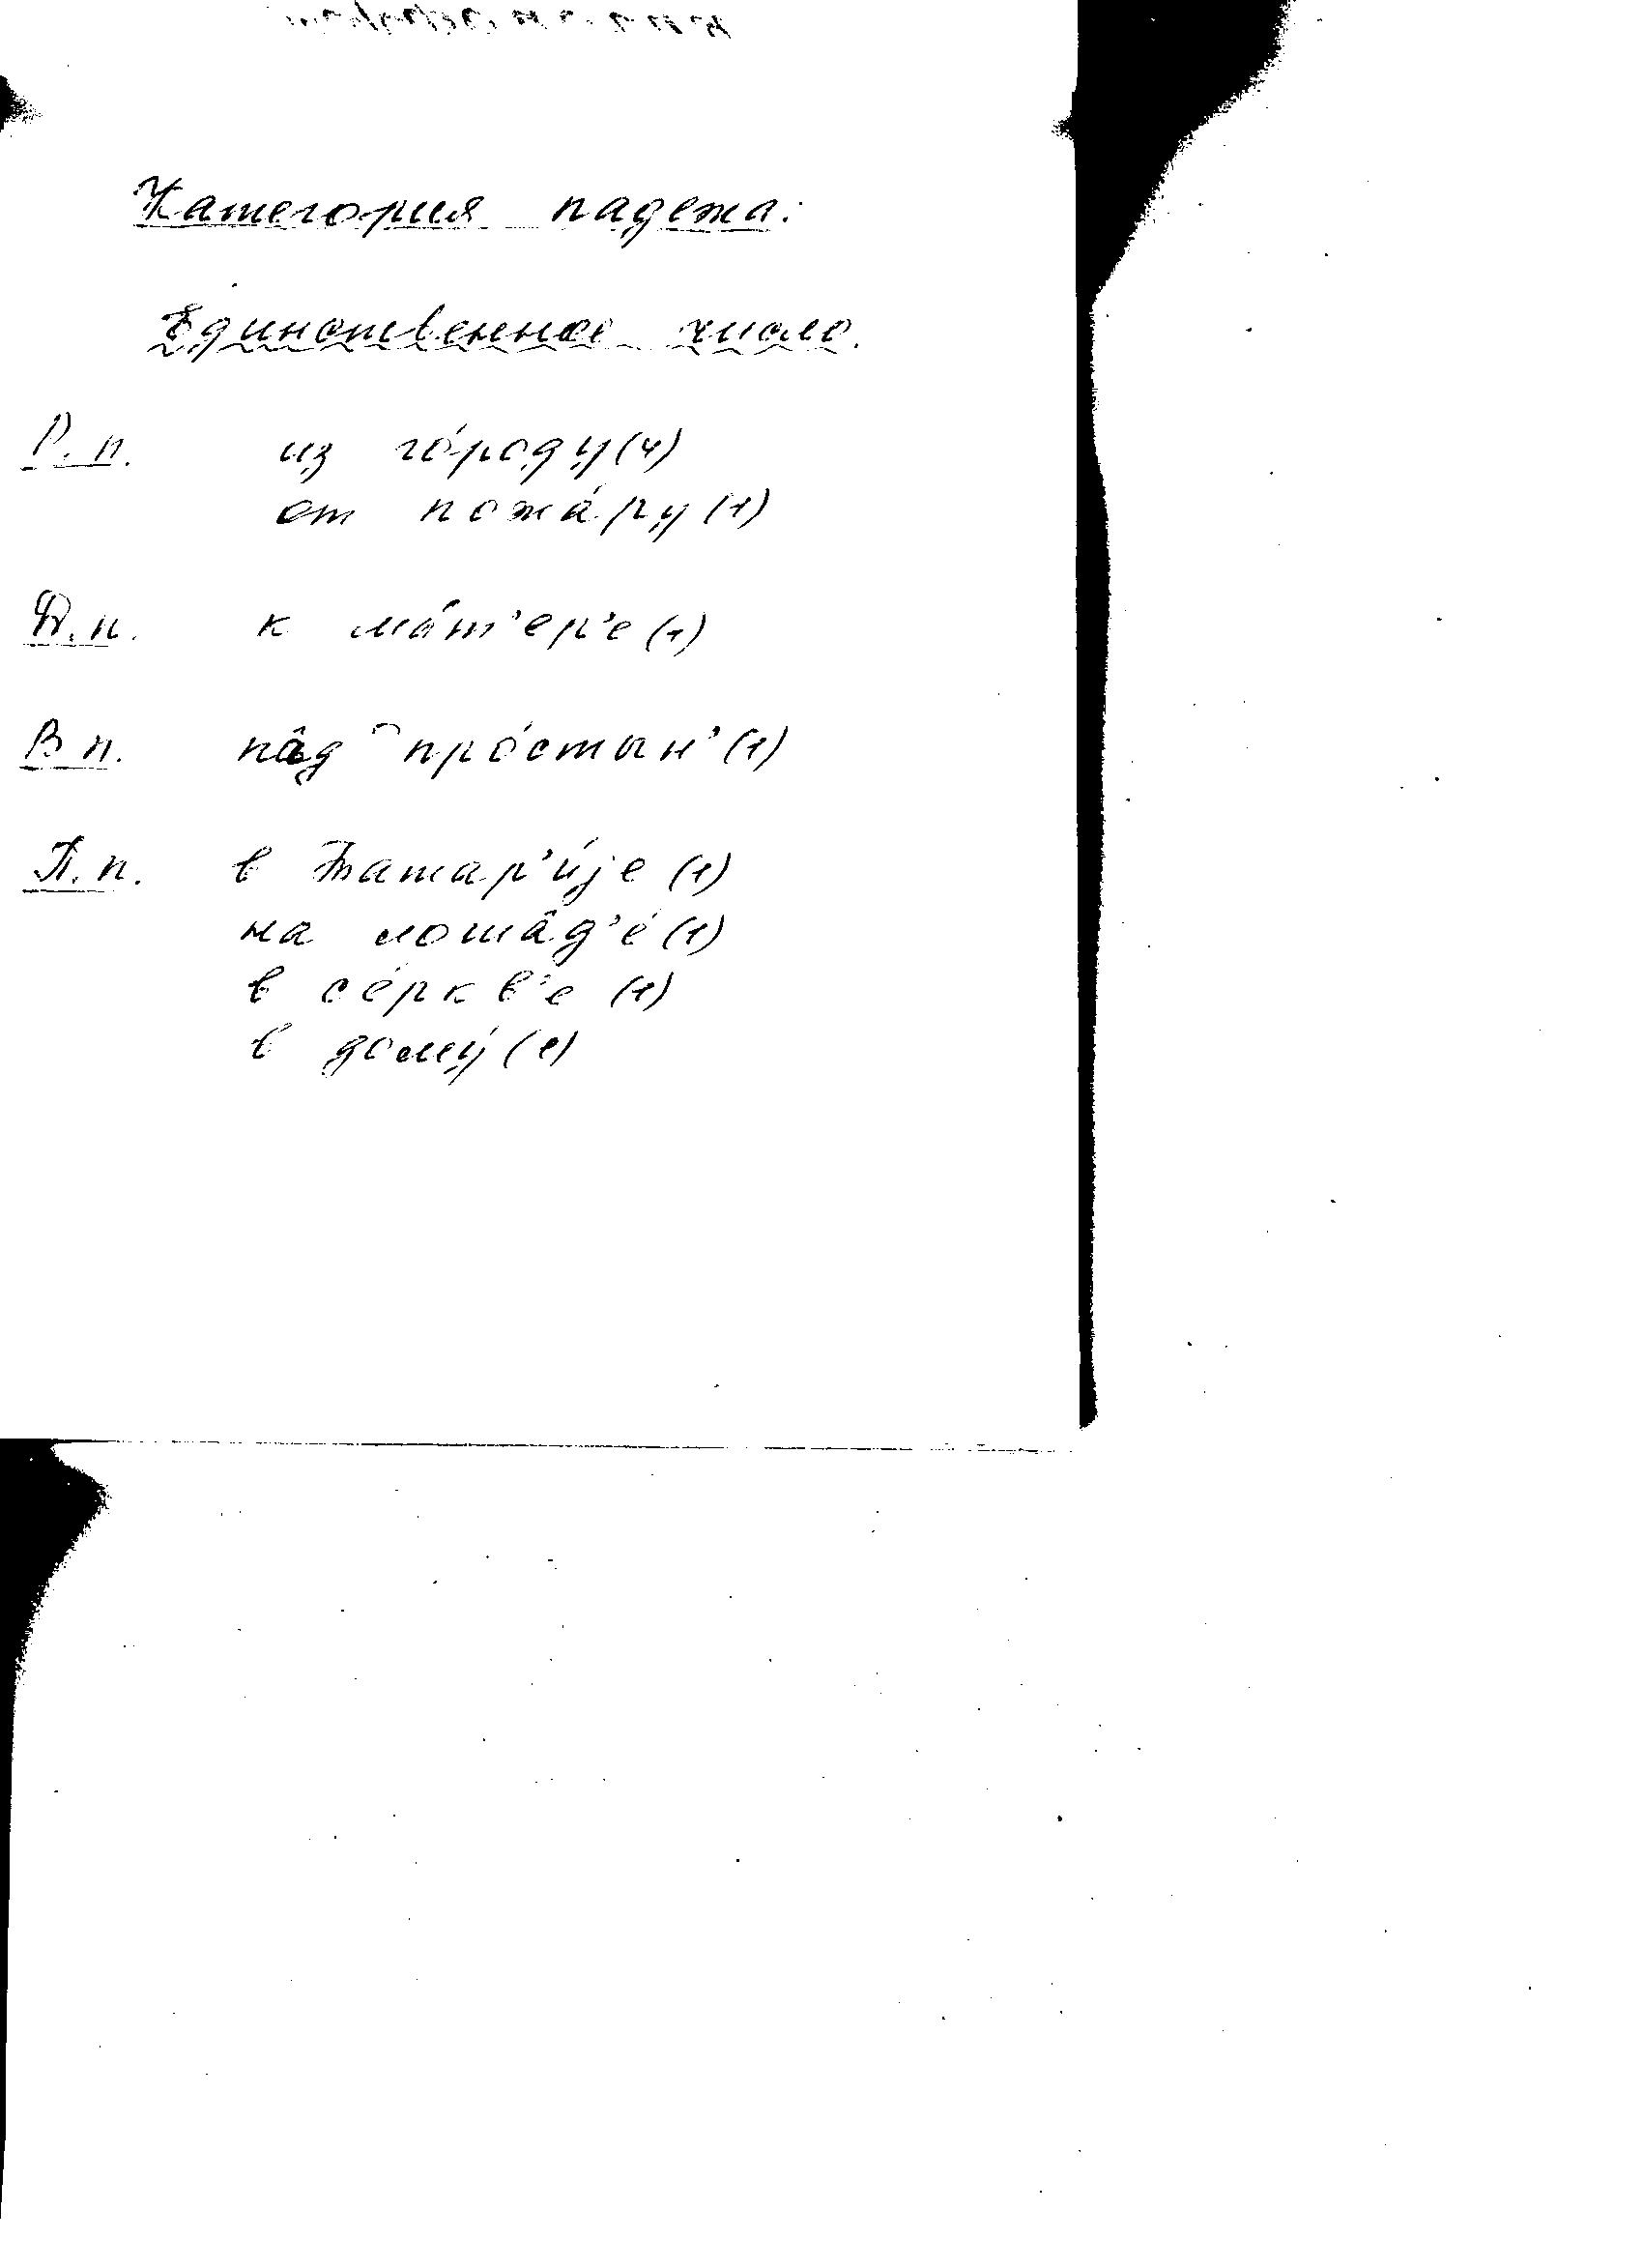 Категория падежа:
Единственное число.
Р.п. из го́роду (4)
от пожа́ру (1)
Д.п. к ма́т'ер'е (1)
В п. под про́стын' (1)
П.п. в Татар'и́jе (1)
на лошâд'е́ (1)
в се́ркв'е (1)
в дому́ (1)